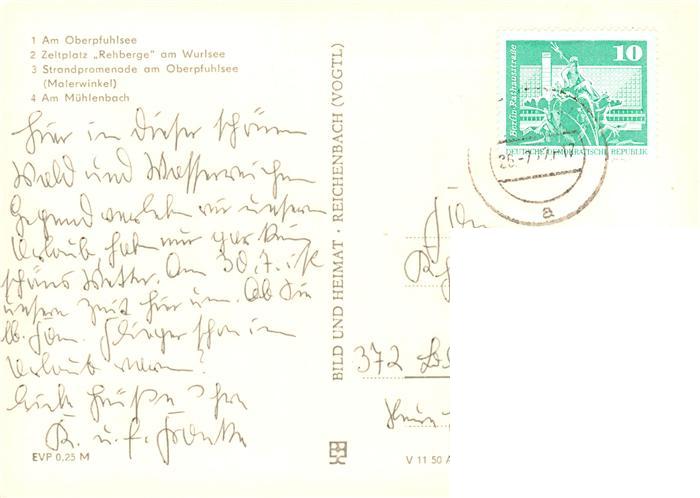 1 Am Oberpfuhlsee
2 Zeltplatz „Rehberge" am Wurlsee
3 Strandpromenade am Oberpfuhlsee
(Malerwinkel)
4 Am Mühlenbach
Hier in dieser schönen
Wald und Wasserreichen
Gegend verleben wir unseren
Urlaub, haben nur gar kein
schönes Wetter. Am 30.7. ist
unsere Zeit hier um. Ob Sie
lb. Fam. schon im
Urlaub waren?
Grüße Ihre
K. u. F.
EVP 0,25 M
BILD UND HEIMAT · REICHENBACH (VOGTL)
V 11 50 A
10
Berlin, Rathausstraße
DEUTSCHE DEMOKRATISCHE REPUBLIK
26.-7.77.-17
a
Fam
372